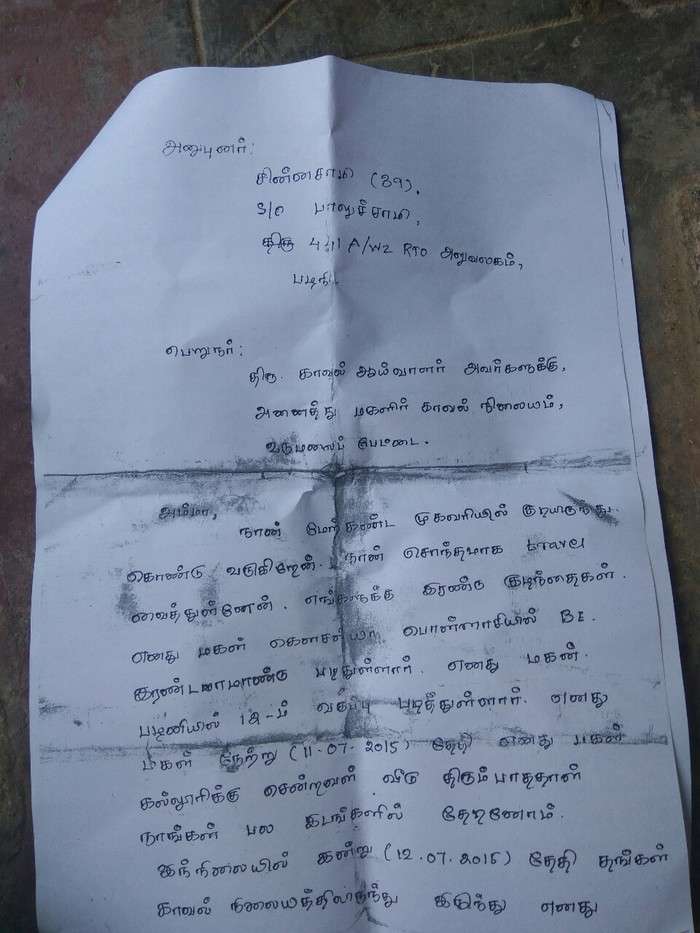 அனுபுனர்:
சின்னசாமி (39),
S/o பாலுச்சாமி,
441 A/W2 RTO அலுவலகம்,
பழநி.
பெறுநர்:
திரு. காவல் ஆய்வாளர் அவர்களுக்கு,
அனைத்து மகளிர் காவல் நிலையம்,
அம்மா,
நான் மேற்கண்ட முகவரியில் குடியிருந்து
கொண்டு வருகிறேன். நான் சொந்தமாக travel
வைத்துள்ளேன். எங்களுக்கு இரண்டு குழந்தைகள்.
எனது மகள் கௌசல்யா பொள்ளாசியில் BE.
இரண்டாமாண்டு படிதுள்ளார். எனது மகன்.
பழனியில் 12-ம் வகுப்பு படித்துள்ளார். எனது
மகள் நேற்று (11.07.2015) தேதி எனது மகள்
கல்லூரிக்கு சென்றவள் வீடு திரும்பாததால்
நாங்கள் பல இடங்களில் தேடினோம்.
இந்நிலையில் இன்று (12.07.2015) தேதி தங்கள்
காவல் நிலையத்திலிருந்து இருந்து எனது